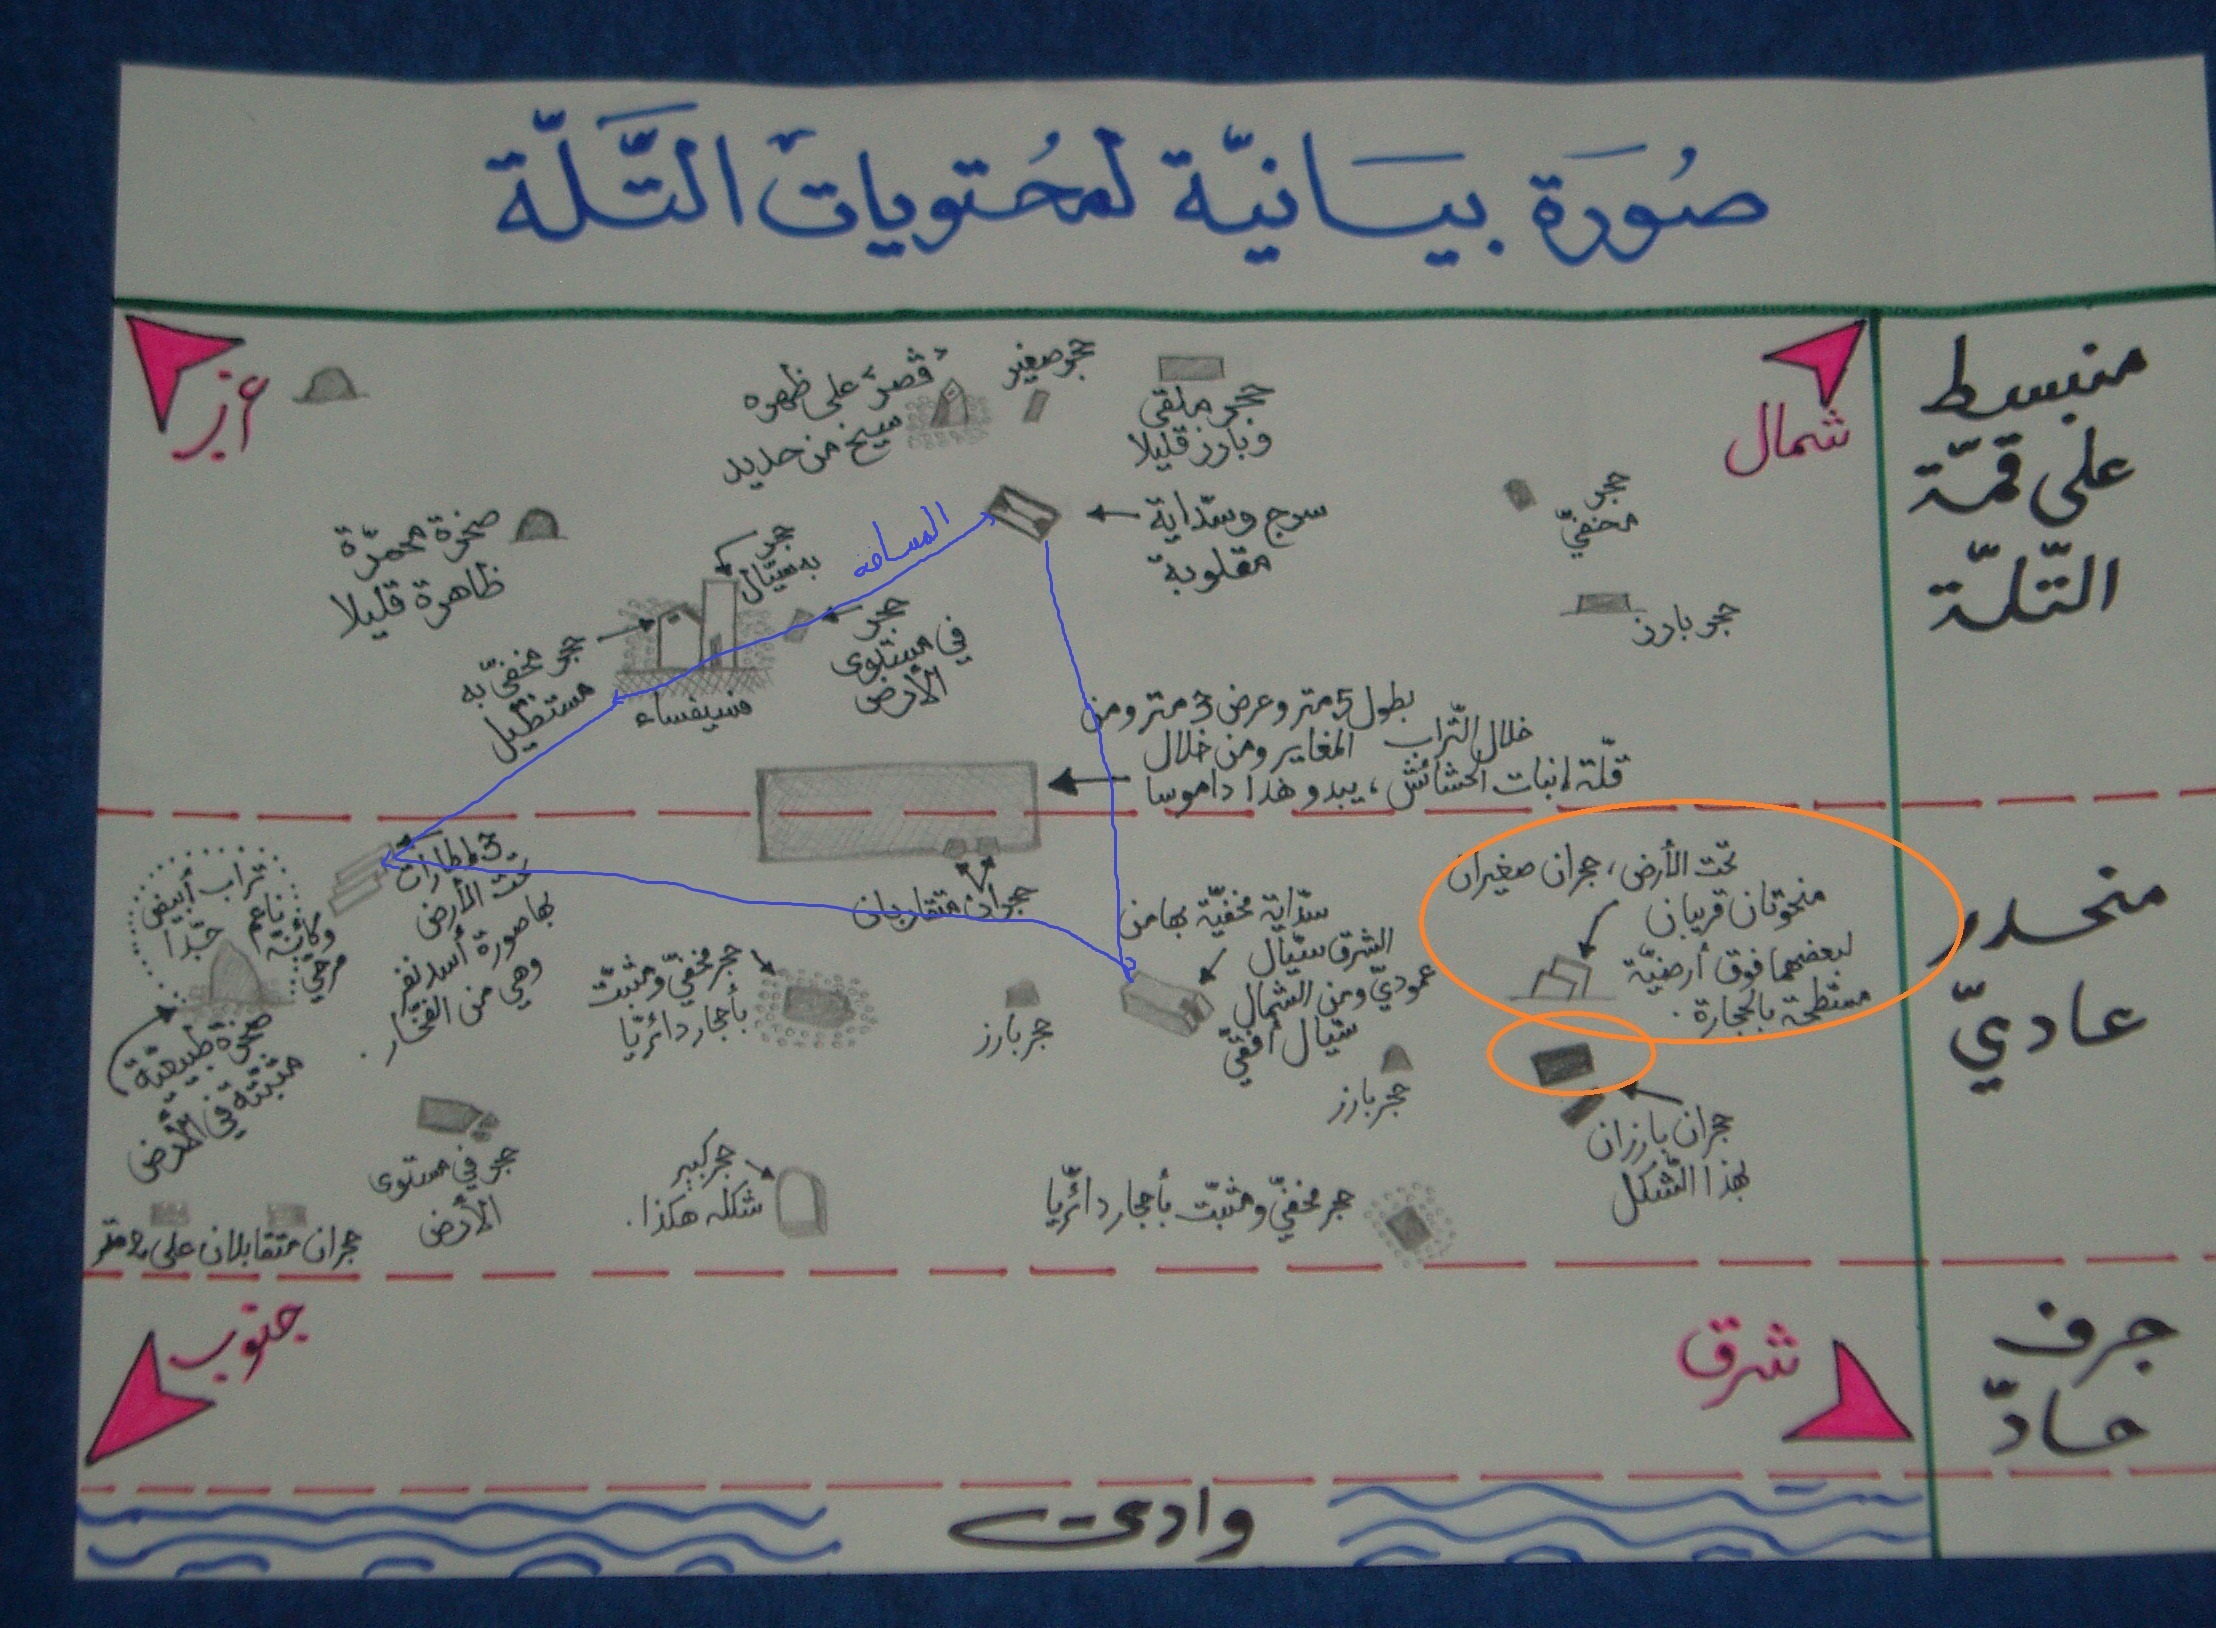 صُورَة بيَانيّة لمُحتويات التَّلّة
منبسط
على قمّة
التّلّة
شمال
حجر ملقى
وبارز قليلا
حجر صغير
"قصر" على ظهره
سيخ من حديد
حجر
مخفيّ
سرج وسدّاية
مقلوبة
المسافه
حجر
به سيّال
صخرة محمرّة
ظاهرة قليلا
حجر بارز
حجر
في مستوى
الأرض
حجر مخفيّ به
مستطيل
فسيفساء
بطول 5 متر وعرض 3 متر ومن
خلال التّراب المغاير ومن خلال
قلّة إنبات الحشائش، يبدو هذا داموسا
منحدر
عاديّ
تحت الأرض، حجران صغيران
منحوتان قريبان
لبعضهما فوق أرضيّة
مسطحة بالحجارة.
سدّاية مخفيّة بها من
الشرق سيّال
عموديّ ومن الشمال
سيّال أفقيّ
حجران متقاربان
3 إطارات
تحت الأرض
بها صورة أسد نفر
وهي من الفخّار.
تراب أبيض
ناعم جدّا
وكأنّه
صخرة طبيعيّة
مثبّتة في الأرض
حجر مخفيّ ومثبّت
بأحجار دائريّا
حجر بارز
حجر بارز
حجران بارزان
بهذا الشكل
حجر مخفيّ ومثبّت بأحجار دائريّا
حجر كبير
شكله هكذا.
حجر في مستوى
الأرض
حجران متقابلان على 2 متر
جرف
حادّ
جنوب
شرق
وادي